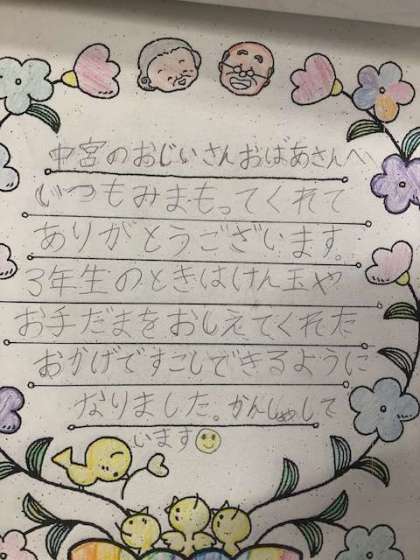 中宮のおじいさんおばあさんへ
いつもみまもってくれて
ありがとうございます。
3年生のときはけん玉や
お手だまをおしえてくれた
おかげですこしできるように
なりました。かんしゃして
います